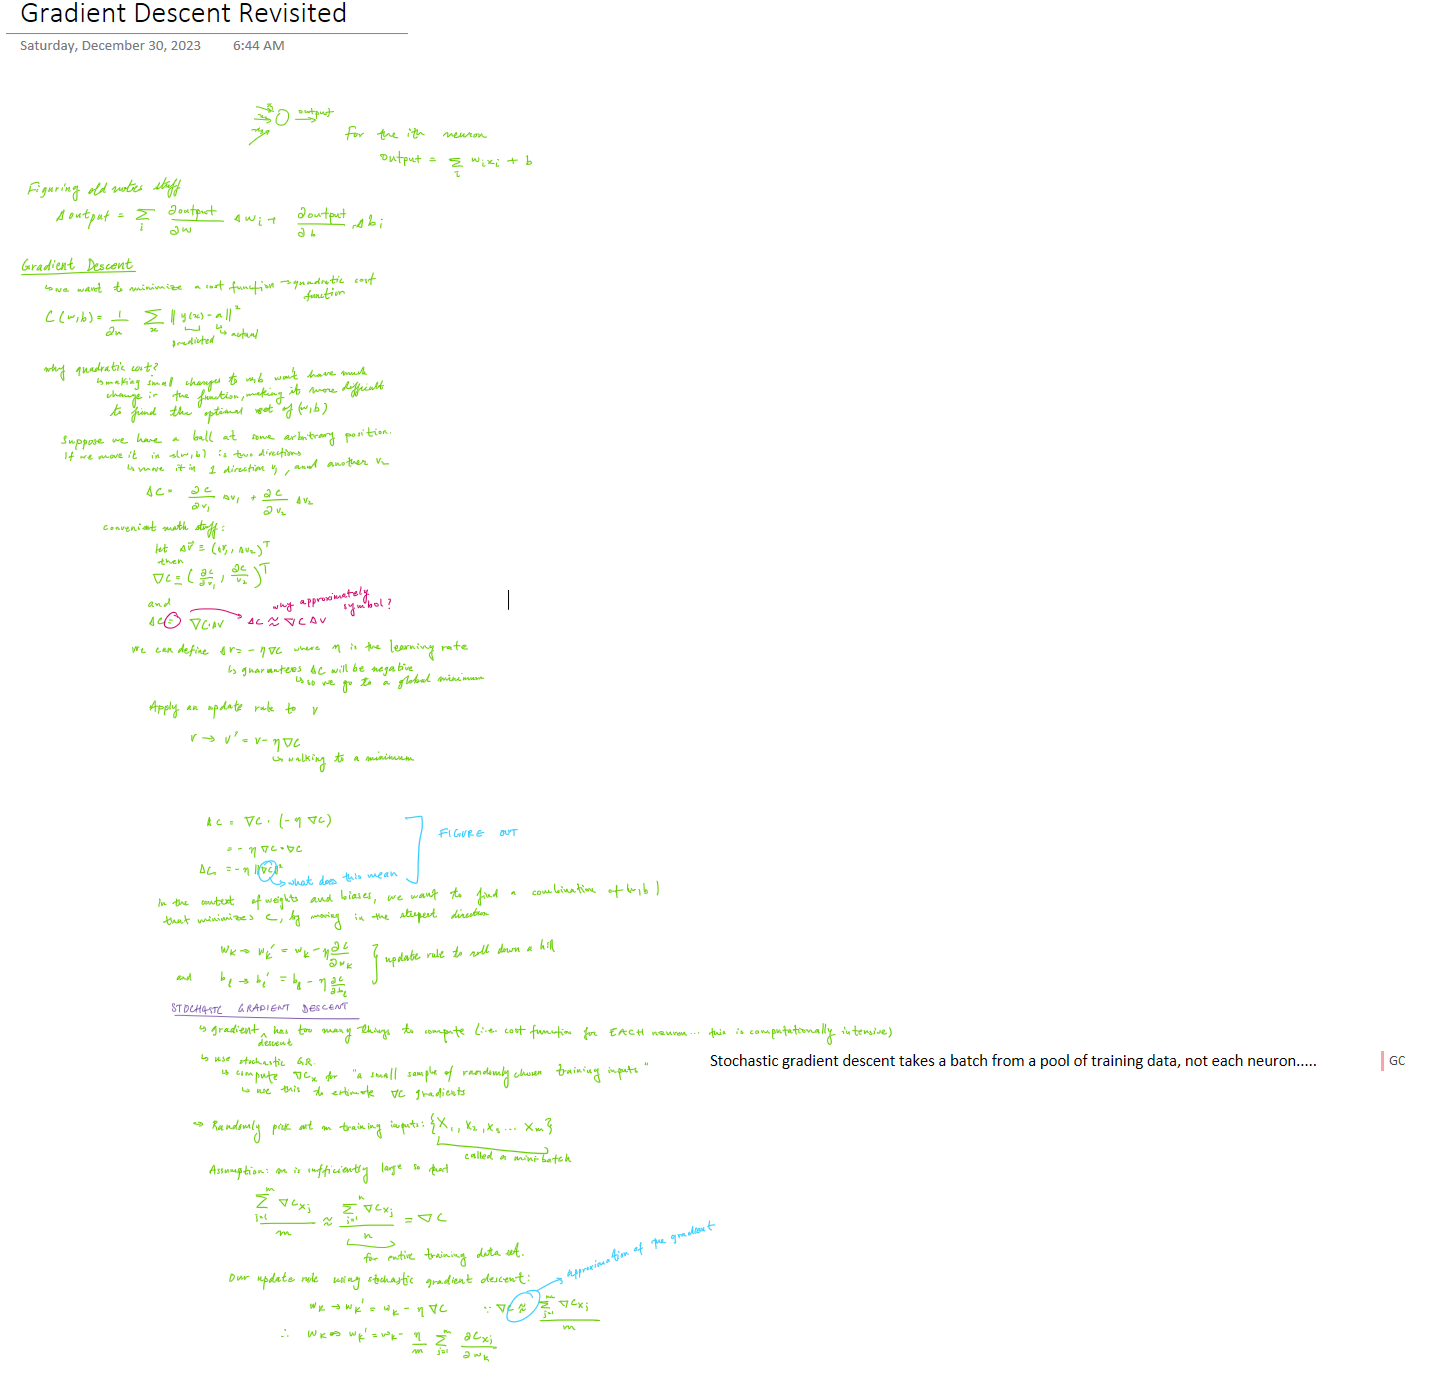 Gradient Descent Revisited
Saturday, December 30, 2023 6:44 AM
output
for the ith neuron
output = Σ_i w_i x_i + b
Figuring old notes stuff
Δ output = Σ_i ∂output/∂w Δw_i + ∂output/∂b Δb_i
Gradient Descent
↳ we want to minimize a cost function → quadratic cost
function
C(w,b) = 1/2n Σ_x ||y(x) - a||²
predicted ↳ actual
why quadratic cost?
↳ making small changes to w,b won't have much
change in the function, making it more difficult
to find the optimal set of (w,b)
Suppose we have a ball at some arbitrary position.
If we move it in s(w,b) is two directions
↳ move it in 1 direction v₁, and another v₂
ΔC = ∂C/∂v₁ Δv₁ + ∂C/∂v₂ Δv₂
convenient math stuff:
let Δv⃗ = (Δv₁, Δv₂)ᵀ
then
∇C = (∂C/∂v₁, ∂C/v₂)ᵀ
and
why approximately
symbol?
ΔC = ∇C·ΔV → ΔC ≈ ∇C ΔV
We can define Δv = -η∇C where η is the learning rate
↳ guarantees ΔC will be negative
↳ so we go to a global minimum
Apply an update rule to v
v → v' = v - η∇C
↳ walking to a minimum
ΔC = ∇C · (-η ∇C)
FIGURE OUT
= - η ∇C · ∇C
ΔC = - η ||∇C||²
→ what does this mean
In the context of weights and biases, we want to find a combination of (w,b)
that minimizes C, by moving in the steepest direction
w_k → w_k' = w_k - η ∂C/∂w_k
update rule to roll down a hill
and b_l → b_l' = b_l - η ∂C/∂b_l
STOCHASTC GRADIENT DESCENT
↳ gradient descent has too many things to compute (i.e. cost function for EACH neuron... this is computationally intensive)
↳ use stochastic G.R.
Stochastic gradient descent takes a batch from a pool of training data, not each neuron.....
GC
↳ compute ∇C_x for "a small sample of randomly chosen training inputs"
↳ use this to estimate ∇C gradients
→ Randomly pick out m training inputs: {X₁, X₂, X₃ ... Xm}
called a mini-batch
Assumption: m is sufficiently large so that
Σ_{j=1}^{m} ∇C_{Xj} / m ≈ Σ_{j=1}^{n} ∇C_{Xj} / n = ∇C
for entire training data set.
approximation of the gradient
Our update rule using stochastic gradient descent:
w_k → w_k' = w_k - η ∇C ∵ ∇C ≈ Σ_{j=1}^{m} ∇C_{Xj} / m
∴ w_k → w_k' = w_k - η/m Σ_{j=1}^{m} ∂C_{Xj}/∂w_k